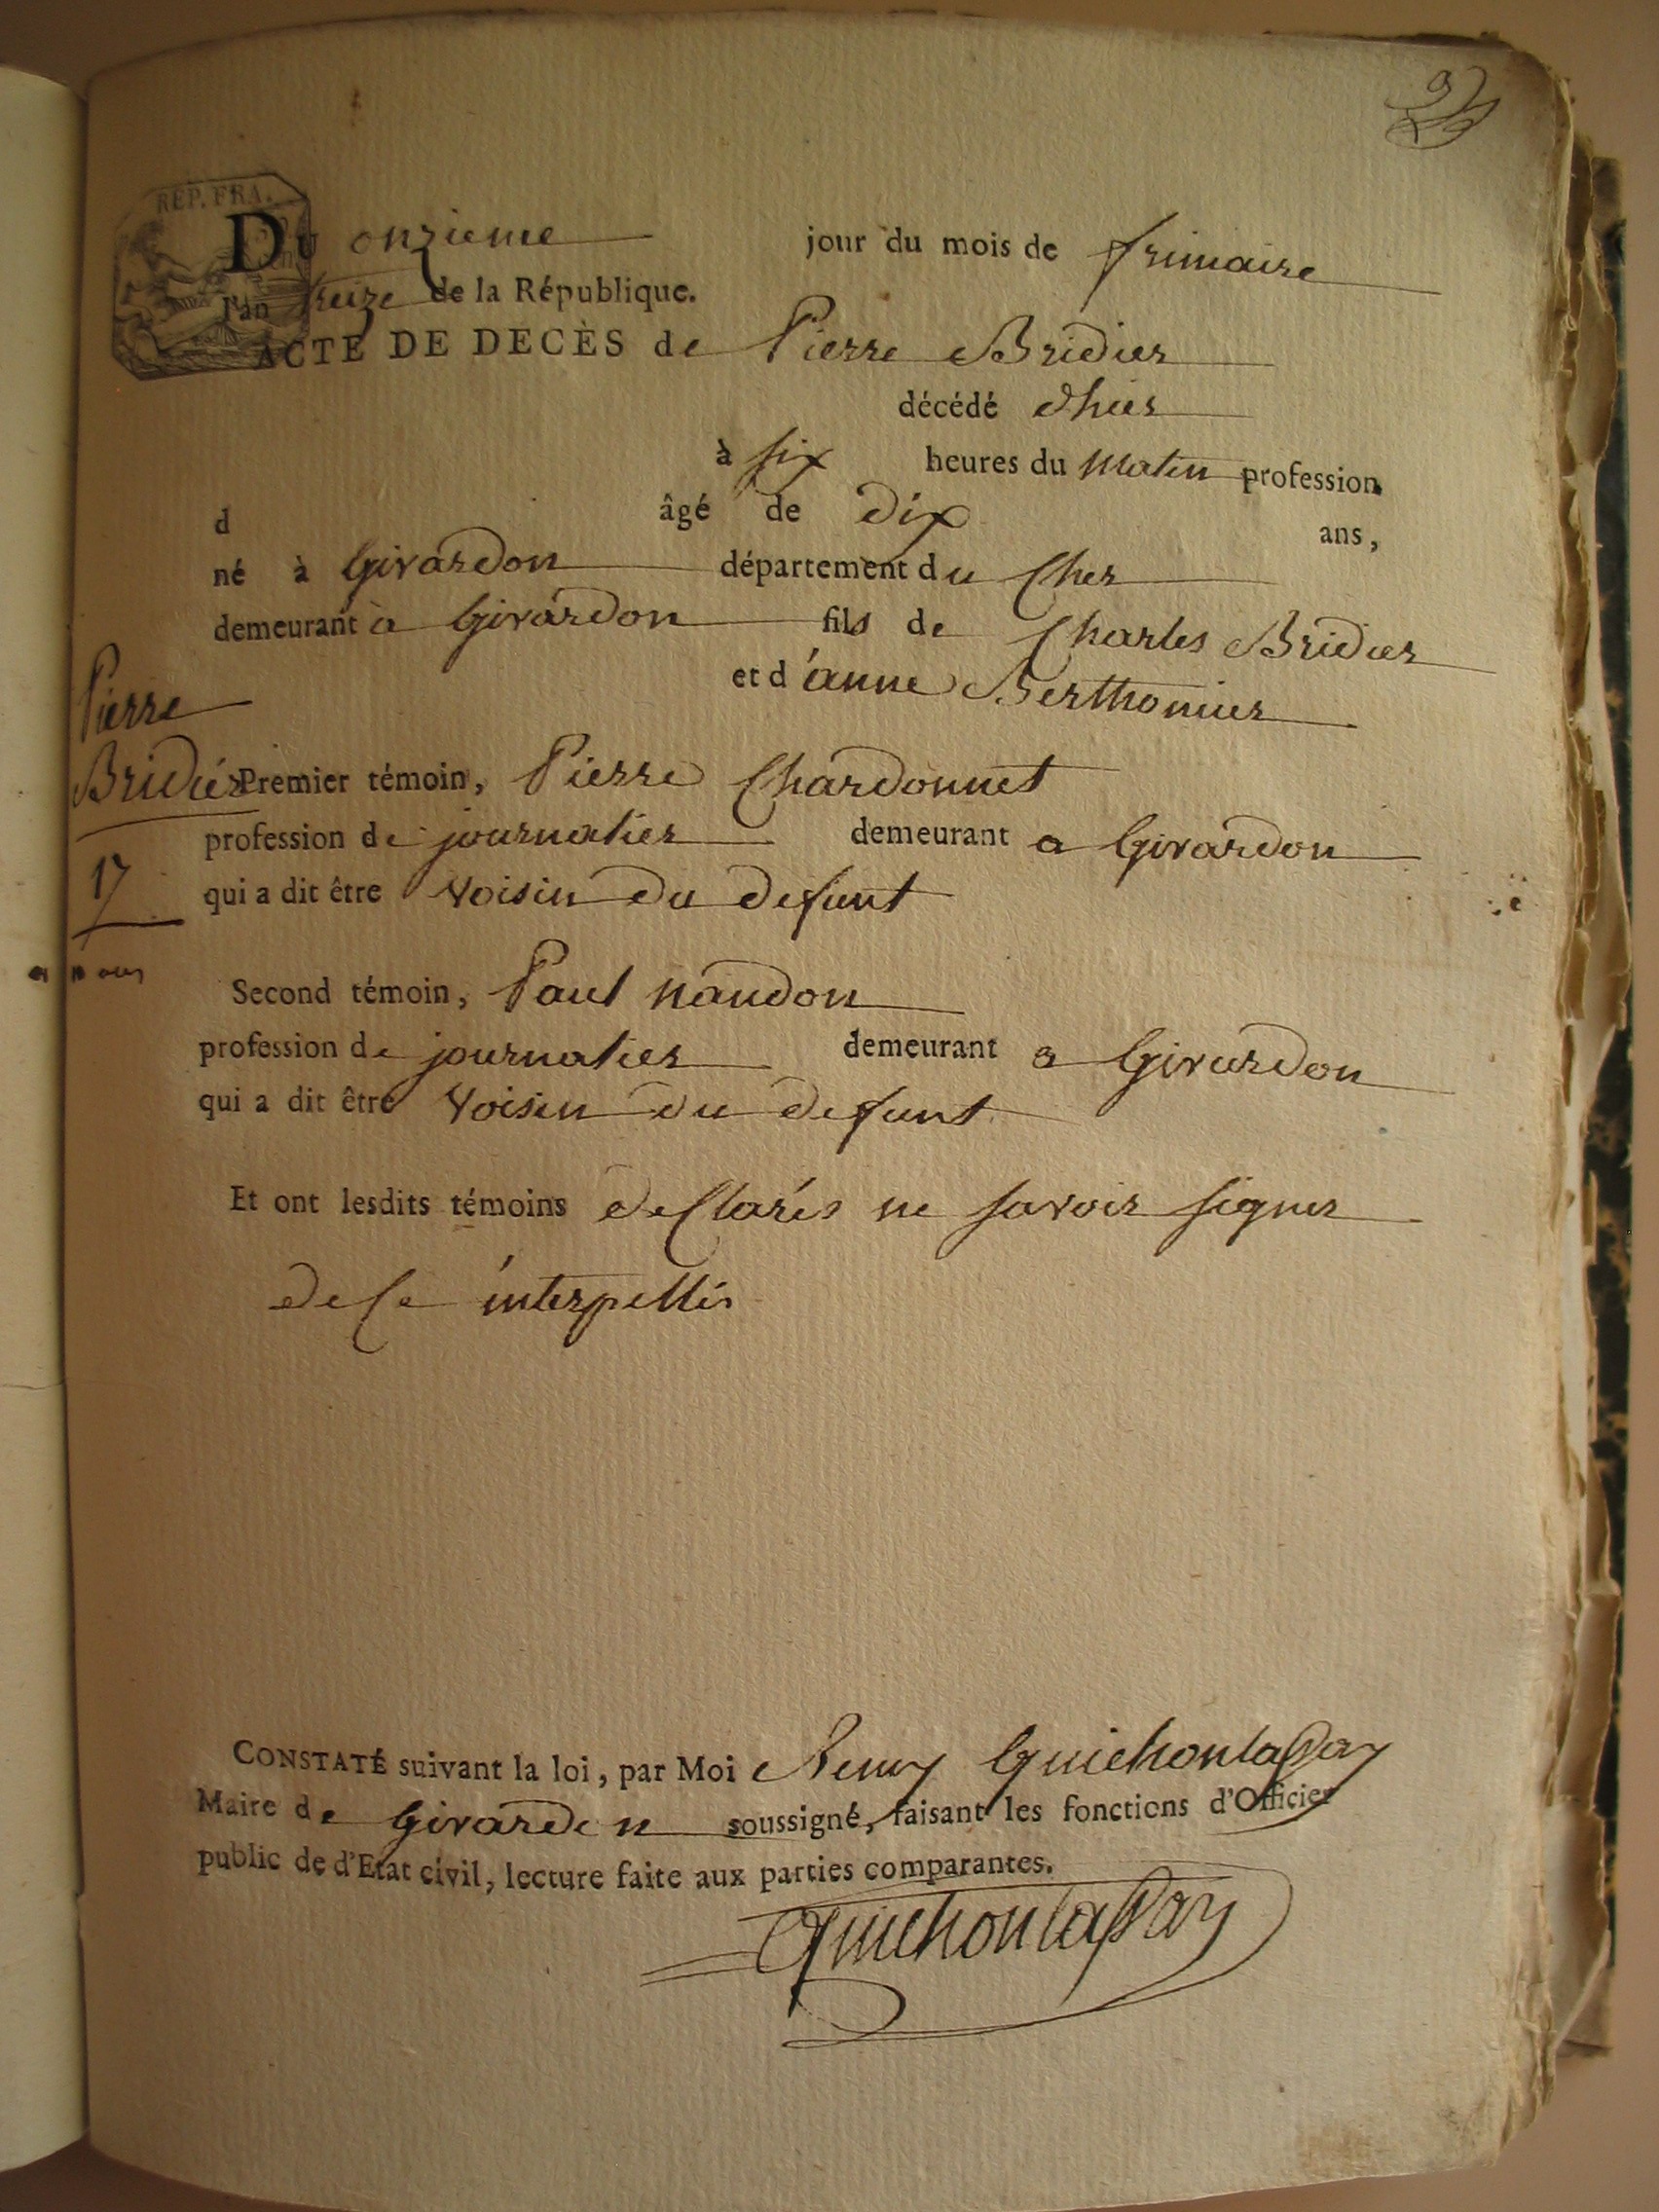 REP. FRA.
DU onzieme jour du mois de frimaire
l'an treize de la République.
ACTE DE DECÈS de Pierre Bridier
décédé d'hier
à six heures du matin profession
d âgé de dix ans,
né à Girardon département du Cher
demeurant a Girardon fils de Charles Bridier
et d'anne Berthomier
Pierre
Bridier
17
Premier témoin, Pierre Chardonnet
profession de journalier demeurant a Girardon
qui a dit être voisin du defunt
Second témoin, Paul naudon
profession de journalier demeurant a Girardon
qui a dit être voisin du defunt
Et ont lesdits témoins declarés ne savoir signer
de ce interpellés
CONSTATÉ suivant la loi, par Moi Remy Guichonlassay
Maire de Girardon soussigné, faisant les fonctions d'Officier
public de d'Etat civil, lecture faite aux parties comparantes.
Guichonlassay